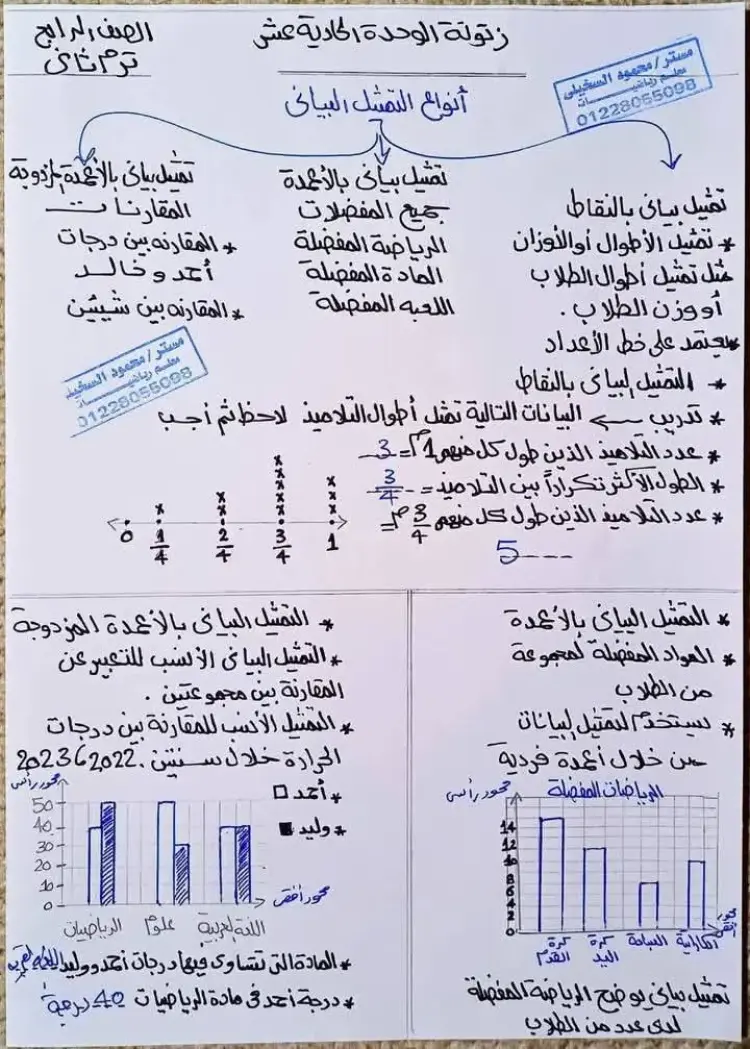 زتونة الوحدة الحادية عشر
الصف الرابع
ترم ثانى
مستر / محمود السخيلى
معلم رياضيات
01228055098
أنواع التمثيل البيانى
تمثيل بيانى بالنقاط
* تمثيل الأطوال أو الأوزان
مثل تمثيل أطوال الطلاب
أو وزن الطلاب .
* يعتمد على خط الأعداد
تمثيل بيانى بالأعمدة
جميع المفضلات
الرياضة المفضلة
المادة المفضلة
اللعبه المفضلة
تمثيل بيانى بالأعمدة المزدوجة
المقارنات
* المقارنه بين درجات
أحمد و خالد
* المقارنه بين شيئين
مستر / محمود السخيلى
معلم رياضيات
01228055098
* التمثيل البيانى بالنقاط
* تدريب ← البيانات التالية تمثل أطوال التلاميذ لاحظ ثم أجب
* عدد التلاميذ الذين طول كل منهم 1م = 3
* الطول الأكثر تكراراً بين التلاميذ = 3/4
* عدد التلاميذ الذين طول كل منهم 3/4 م =
5
0 1/4 2/4 3/4 1
* التمثيل البيانى بالأعمدة
* المواد المفضلة لمجموعة
من الطلاب
* يستخدم لتمثيل لبيانات
من خلال أعمدة فردية
الرياضات المفضلة
محور رأسى
14
12
10
8
6
4
2
0
محور أفقى
كرة القدم
كرة اليد
السباحة
الكاراتية
تمثيل بيانى يوضح الرياضة المفضلة
لدى عدد من الطلاب
* التمثيل البيانى بالأعمدة المزدوجة
* التمثيل البيانى الأنسب للتعبير عن
المقارنة بين مجموعتين .
* التمثيل الأنسب للمقارنة بين درجات
الحرارة خلال سنتين . 2022 6 2023
محور رأسى
* أحمد
* وليد
50
40
30
20
10
0
محور أفقى
الرياضيات
علوم
اللغة العربية
* المادة التى تتساوى فيها درجات أحمد ووليد اللغة العربية
* درجة أحمد فى مادة الرياضيات 40 درجة